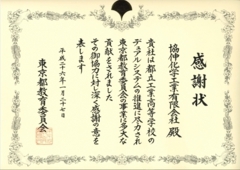 感謝状
協伸化学工業有限会社 殿
貴社は都立工業高等学校の
デュアルシステムの推進に尽力され
東京都教育委員会の事業に多大な
貢献をされました
その御協力に対し深く感謝の意を
表します
平成二十六年一月二十七日
東京都教育委員会